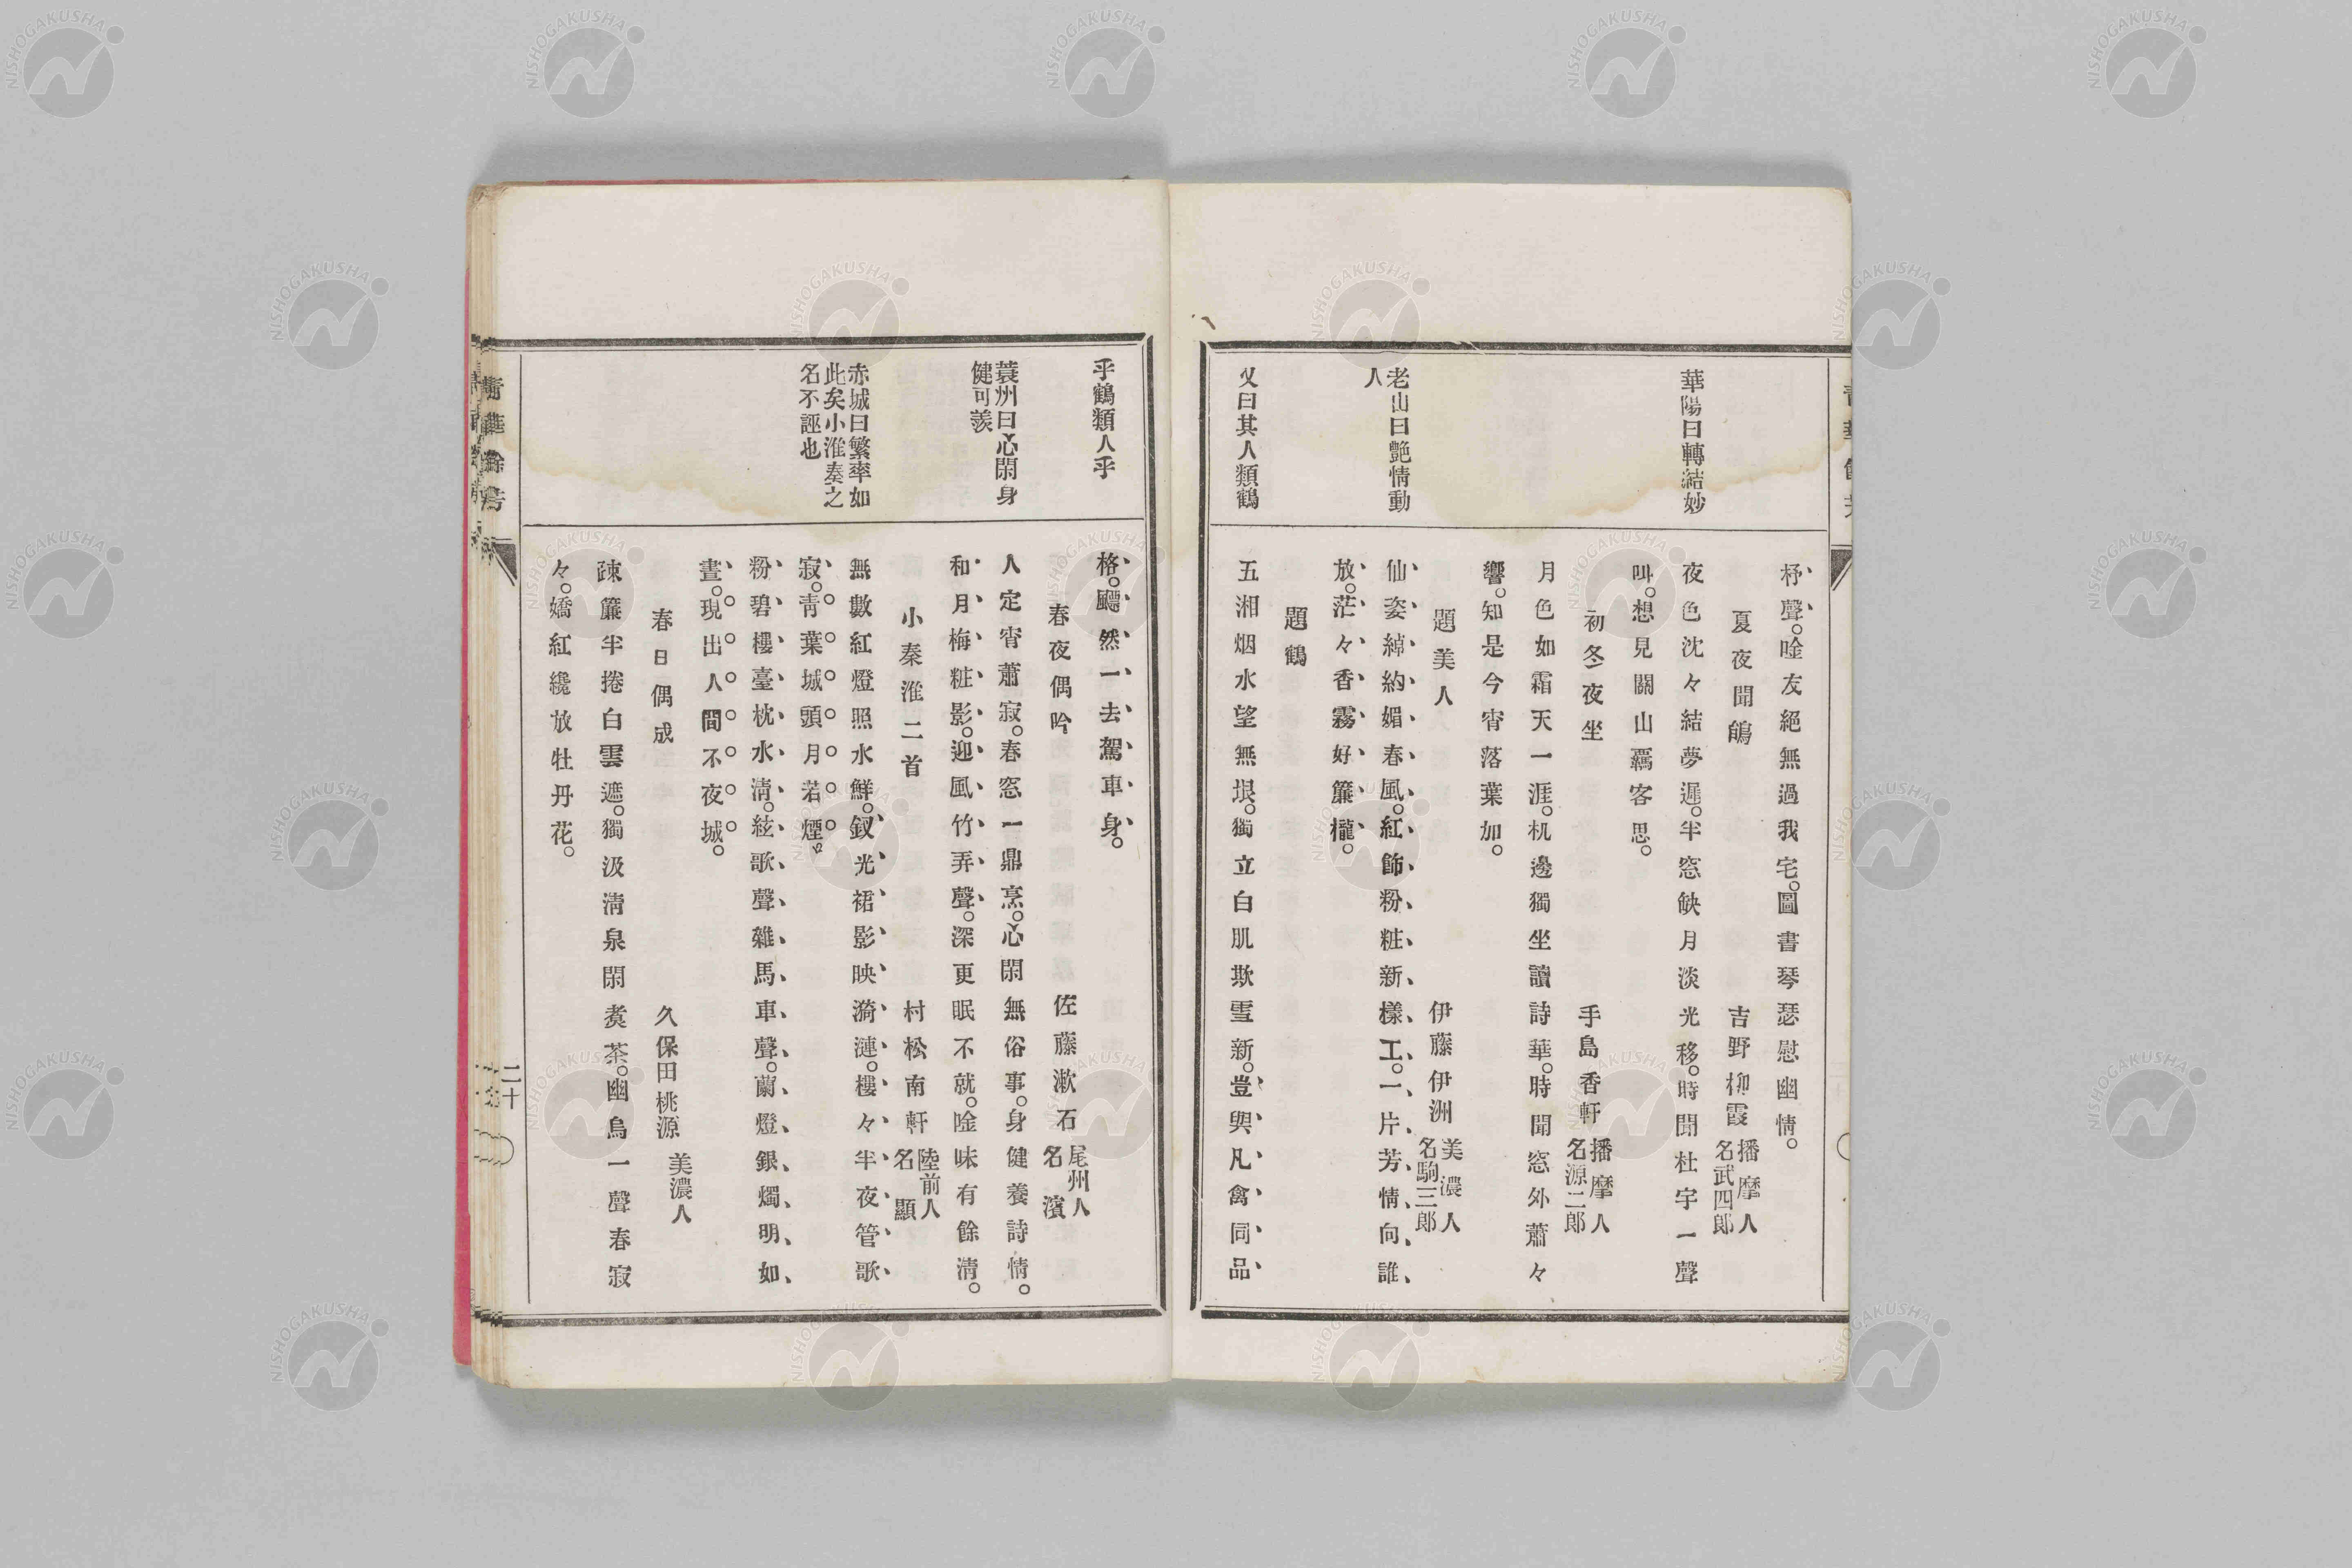 華陽曰轉結妙
老山曰艷情動
人
又曰其人類鶴
杼聲。唫友絕無過我宅。圖書琴瑟慰幽情。
夏夜聞鵑 吉野柳霞 播摩人 名武四郎
夜色沈々結夢遲。半窓缺月淡光移。時聞杜宇一聲
叫。想見關山羈客思。
初冬夜坐 手島香軒 播摩人 名源二郎
月色如霜天一涯。机邊獨坐讀詩華。時聞窓外蕭々
響。知是今宵落葉加。
題美人 伊藤伊洲 美濃人 名駒三郎
仙姿綽約媚春風。紅飾粉粧新樣工。一片芳情向誰
放。茫々香霧好簾櫳。
題鶴
五湘烟水望無垠。獨立白肌欺雪新。豈與凡禽同品
乎鶴類人乎
蓑州曰心閑身
健可羨
赤城曰繁率如
此矣小淮奏之
名不誣也
格。飃然一去駕車身。
春夜偶吟 佐藤漱石 尾州人 名濱
人定宵蕭寂。春窓一鼎烹。心閑無俗事。身健養詩情。
和月梅粧影。迎風竹弄聲。深更眠不就。唫味有餘清。
小秦淮二首 村松南軒 陸前人 名顯
無數紅燈照水鮮。釵光裙影映漪漣。樓々半夜管歌
寂。靑葉城頭月若煙。
粉碧樓臺枕水清。絃歌聲雜馬車聲。蘭燈銀燭明如
晝。現出人間不夜城。
春日偶成 久保田桃源 美濃人
疎簾半捲白雲遮。獨汲淸泉閑煑茶。幽鳥一聲春寂
々。嬌紅纔放牡丹花。
二十
NISHOGAKUSHA